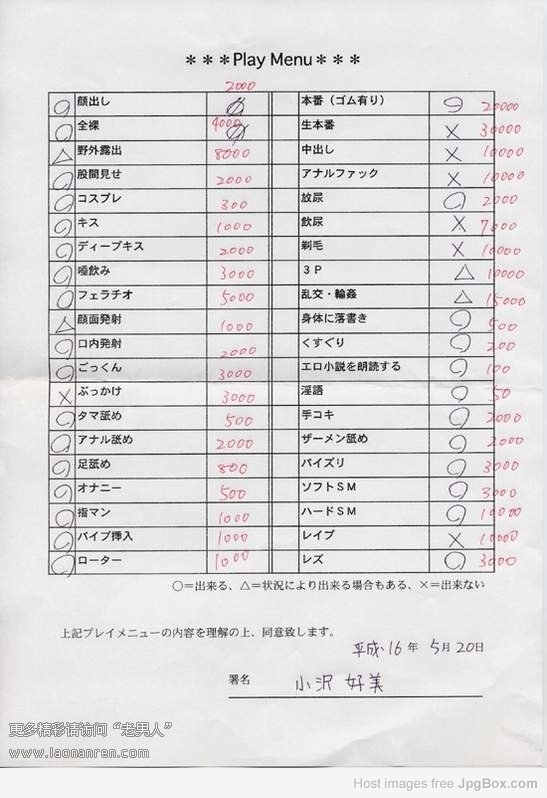 ＊＊＊Play Menu＊＊＊
2000
○ 顔出し ○ 本番（ゴム有り） ○ 20000
○ 全裸 4000 ○ 生本番 × 30000
△ 野外露出 8000 中出し × 10000
○ 股間見せ 2000 アナルファック × 10000
○ コスプレ 300 放尿 ○ 2000
○ キス 1000 飲尿 × 7000
○ ディープキス 2000 剃毛 × 10000
○ 唾飲み 3000 ３Ｐ △ 10000
○ フェラチオ 5000 乱交・輪姦 △ 15000
△ 顔面発射 1000 身体に落書き ○ 500
○ 口内発射 2000 くすぐり ○ 200
○ ごっくん 3000 エロ小説を朗読する ○ 100
× ぶっかけ 3000 淫語 ○ 50
○ タマ舐め 500 手コキ ○ 2000
○ アナル舐め 2000 ザーメン舐め ○ 2000
○ 足舐め 800 パイズリ ○ 3000
○ オナニー 500 ソフトＳＭ ○ 3000
○ 指マン 1000 ハードＳＭ ○ 10000
○ バイブ挿入 1000 レイプ × 10000
○ ローター 1000 レズ ○ 3000
○＝出来る、△＝状況により出来る場合もある、×＝出来ない
上記プレイメニューの内容を理解の上、同意致します。
平成16年 5月20日
署名 小沢 好美
更多精彩请访问“老男人”
www.laonanren.com
Host images free JpgBox.com